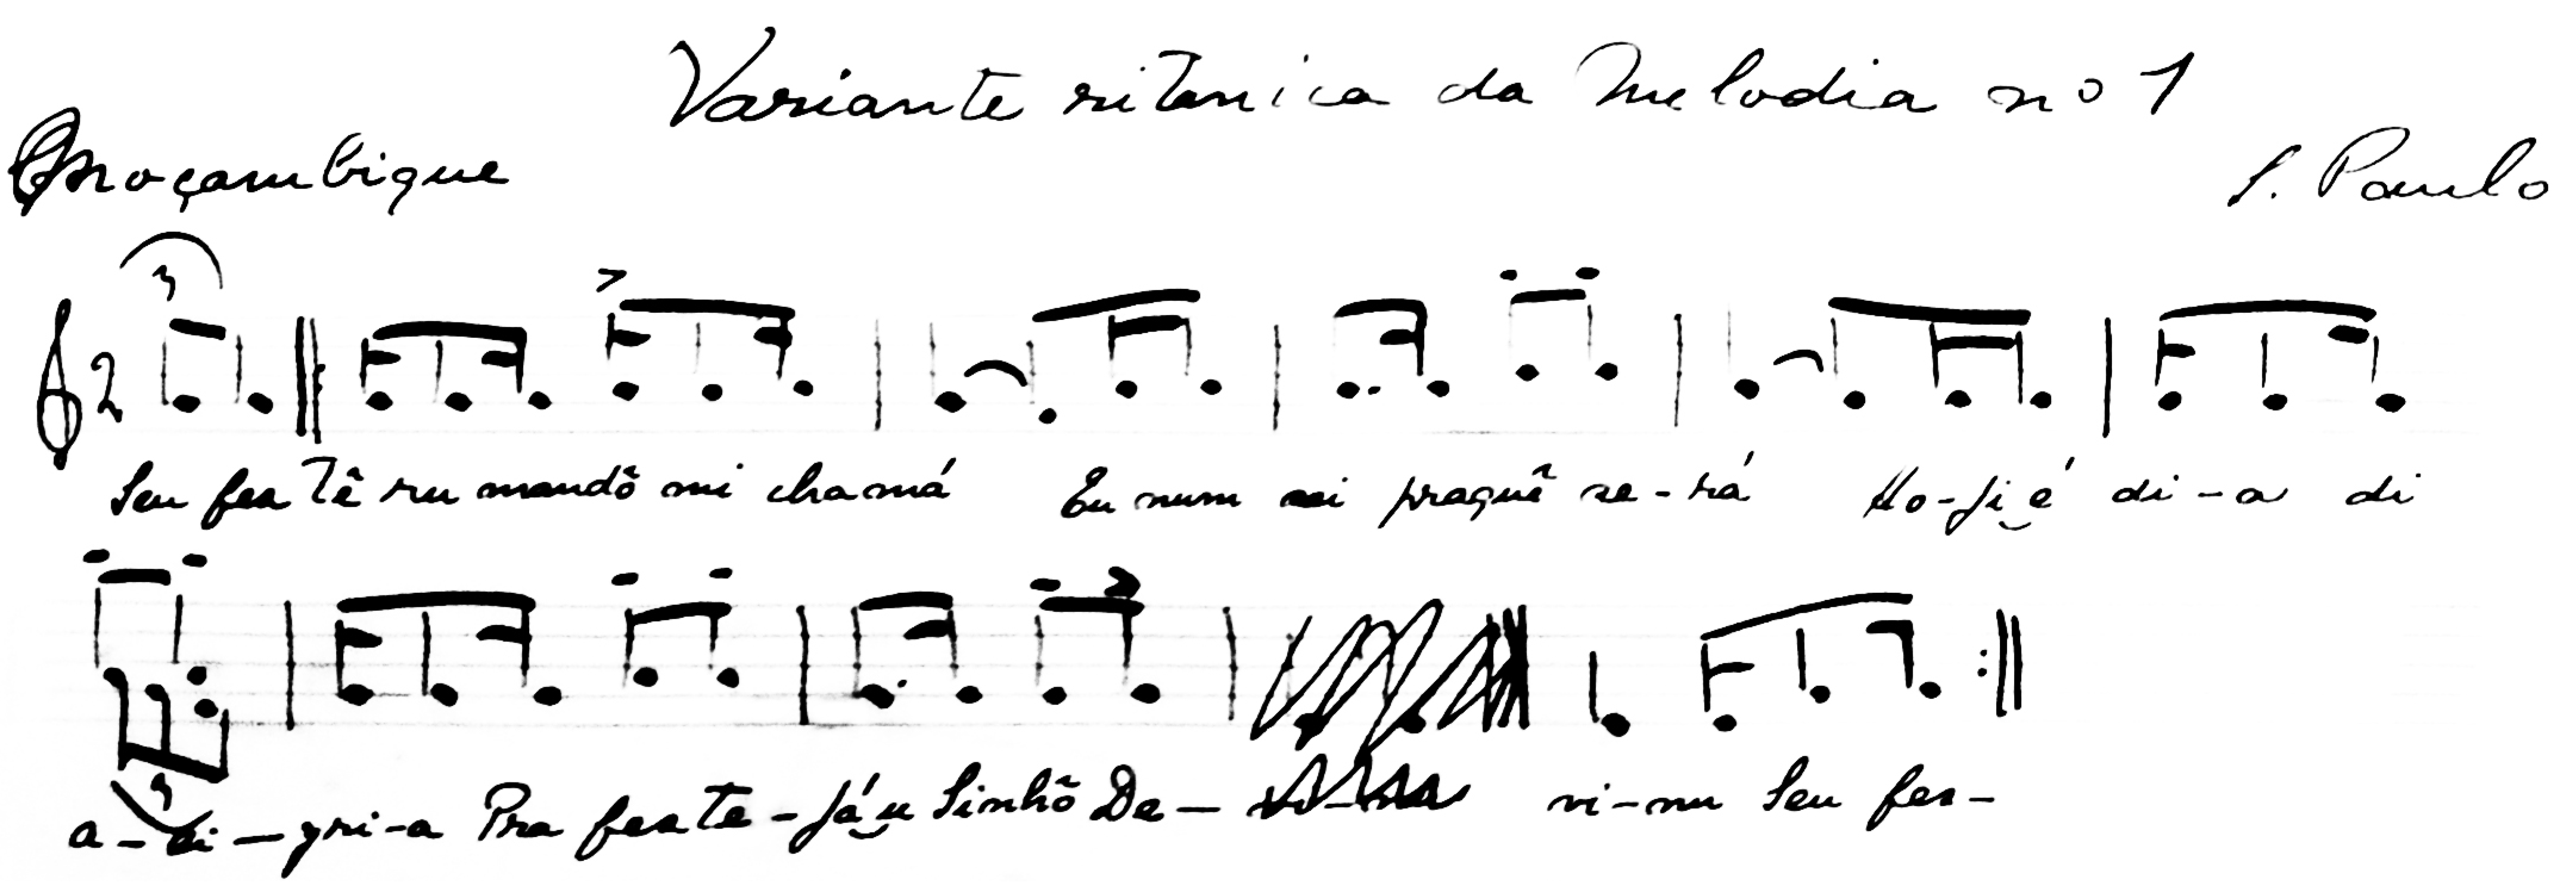 Variante ritmica da Melodia nº 1
Moçambique
S. Paulo
3
2
Seu fes tê ru mandô mi chamá Eu num sei praquê se-rá Ho-ji é di-a di
3
a-li-gri-a Pra feste-já u Sinhô De- vi-nu Seu fes-